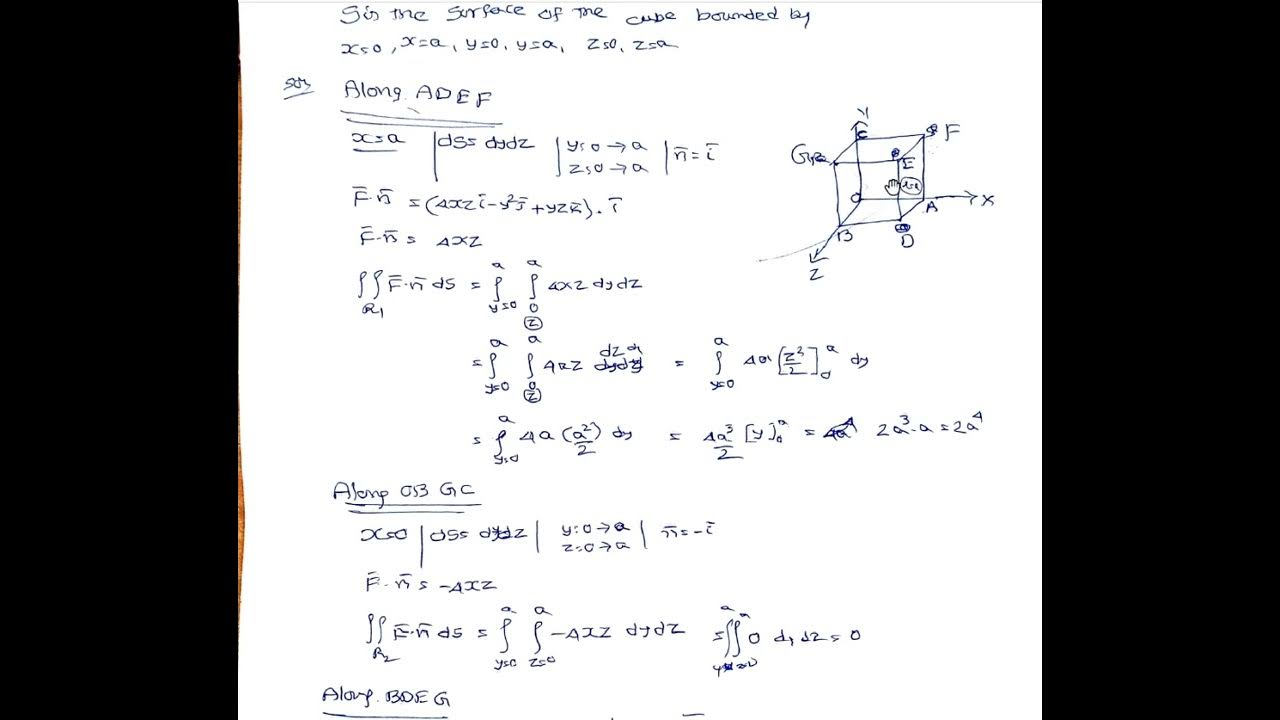 S is the surface of the cube bounded by
x=0, x=a, y=0, y=a, z=0, z=a
Sol Along ADEF
x=a | ds= dydz | y=0→a | n̄=ī
z=0→a
F̄·n̄ = (4xzī-y²j̄+yzk̄)·ī
F̄·n̄= 4xz
∫∫ F̄·n̄ ds = ∫ ∫ 4xz dydz
R₁ y=0 0 a a z
= ∫ ∫ 4az dz dy = ∫ 4a [z²/2]₀ᵃ dy
= ∫ 4a (a²/2) dy = 4a³/2 [y]₀ᵃ = 2a³·a = 2a⁴
Along OBGC
x=0 | ds= dydz | y=0→a | n̄=-ī
z=0→a
F̄·n̄= -4xz
∫∫ F̄·n̄ ds = ∫ ∫ -4xz dydz = ∫∫ 0 dydz = 0
R₂ y=0 z=0 a a
Along BDEG
Y
C
F
G
E
x=a
O
A
X
B
D
Z